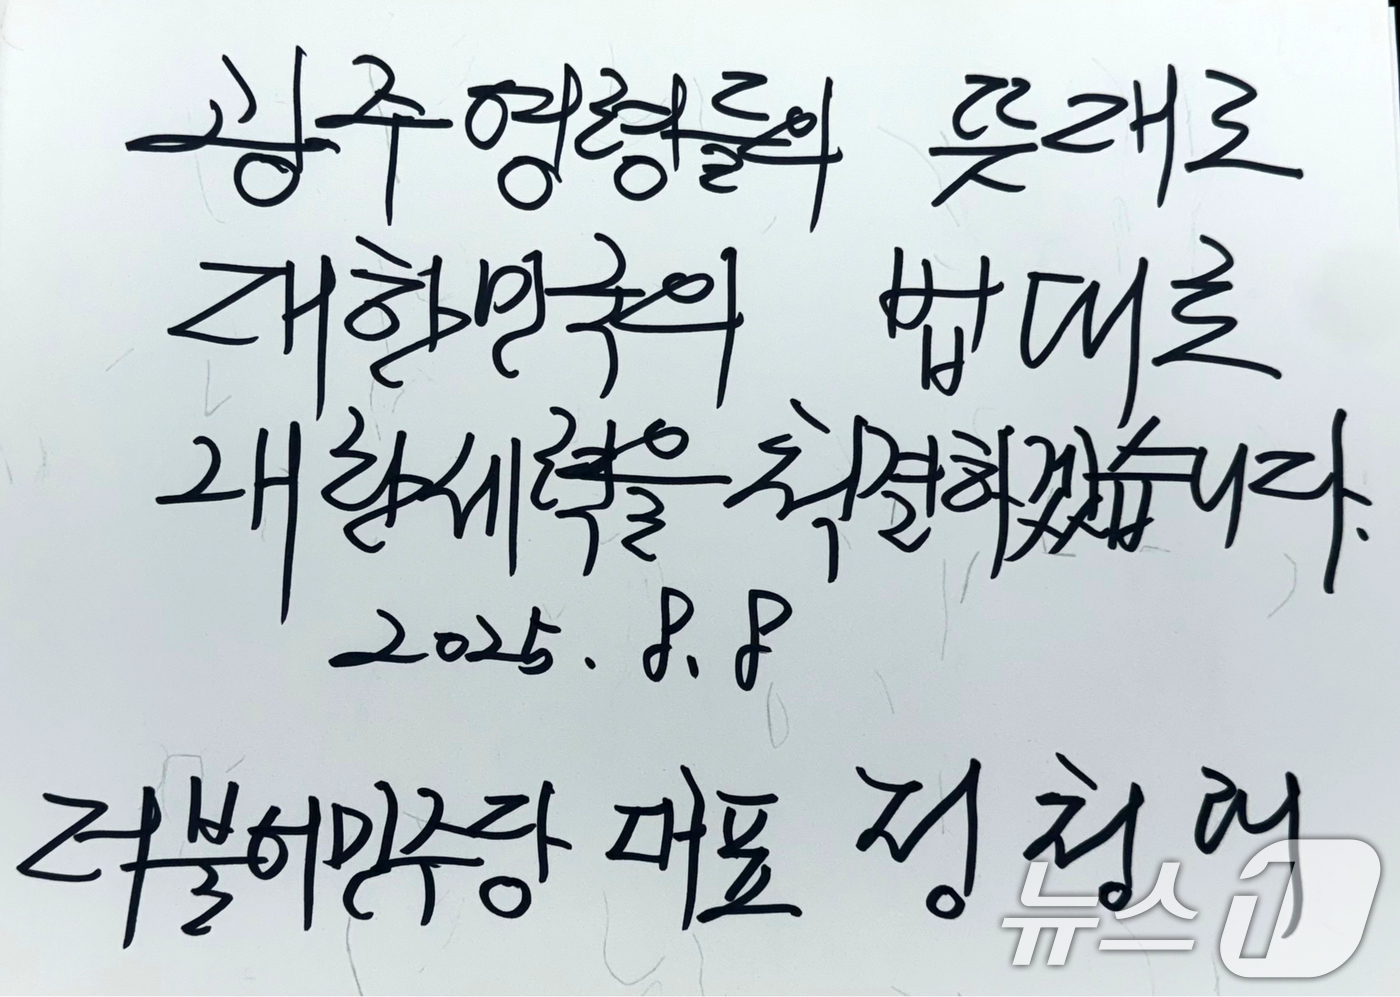 광주 영령들의 뜻대로
대한민국의 법대로
내란세력을 척결하겠습니다.
2025. 8. 8
더불어민주당 대표 정청래
뉴스1